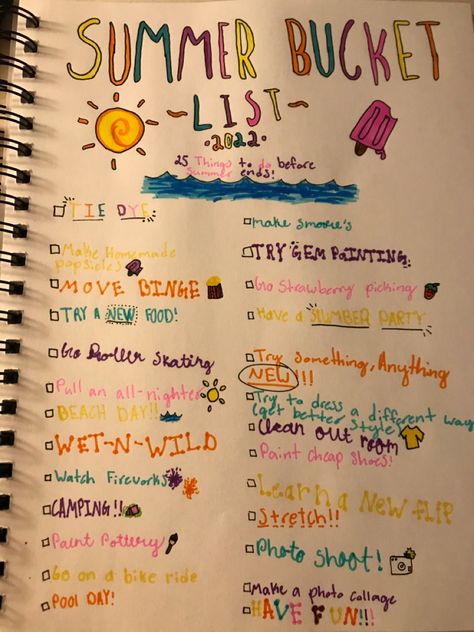 SUMMER BUCKET
~LIST~
•2022•
25 Things to do before
Summer ends!
TIE DYE
Make Homemade
popsicles
MOVE BINGE
TRY A NEW FOOD!
Go Roller Skating
Pull an all-nighter
BEACH DAY!!
WET-N-WILD
Watch Fireworks
CAMPING!!
Paint Pottery
Go on a bike ride
POOL DAY!
make smore's
TRY GEM PAINTING
Go Strawberry picking
Have a SLUMBER PARTY
Try something, Anything
NEW!!!
Try to dress a different way
(get better style)
Clean out room
Paint cheap shoes!
Learn a New flip
Stretch!!
Photo shoot!
Make a photo collage
HAVE FUN!!!